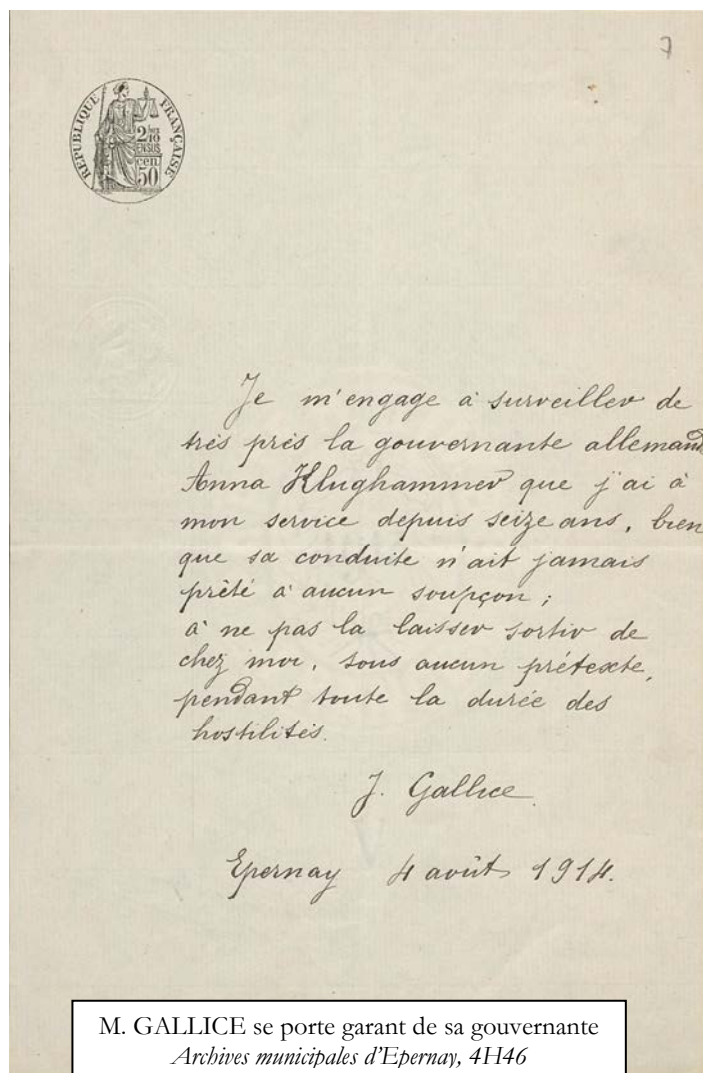 7
RÉPUBLIQUE FRANÇAISE
2/10
EN SUS
cen.
50
Je m'engage à surveiller de
très près la gouvernante allemand
Anna Klughammer que j'ai à
mon service depuis seize ans, bien
que sa conduite n'ait jamais
prêté à aucun soupçon ;
à ne pas la laisser sortir de
chez moi, sous aucun prétexte,
pendant toute la durée des
hostilités.
J. Gallice.
Epernay 4 août 1914.
M. GALLICE se porte garant de sa gouvernante
Archives municipales d'Epernay, 4H46